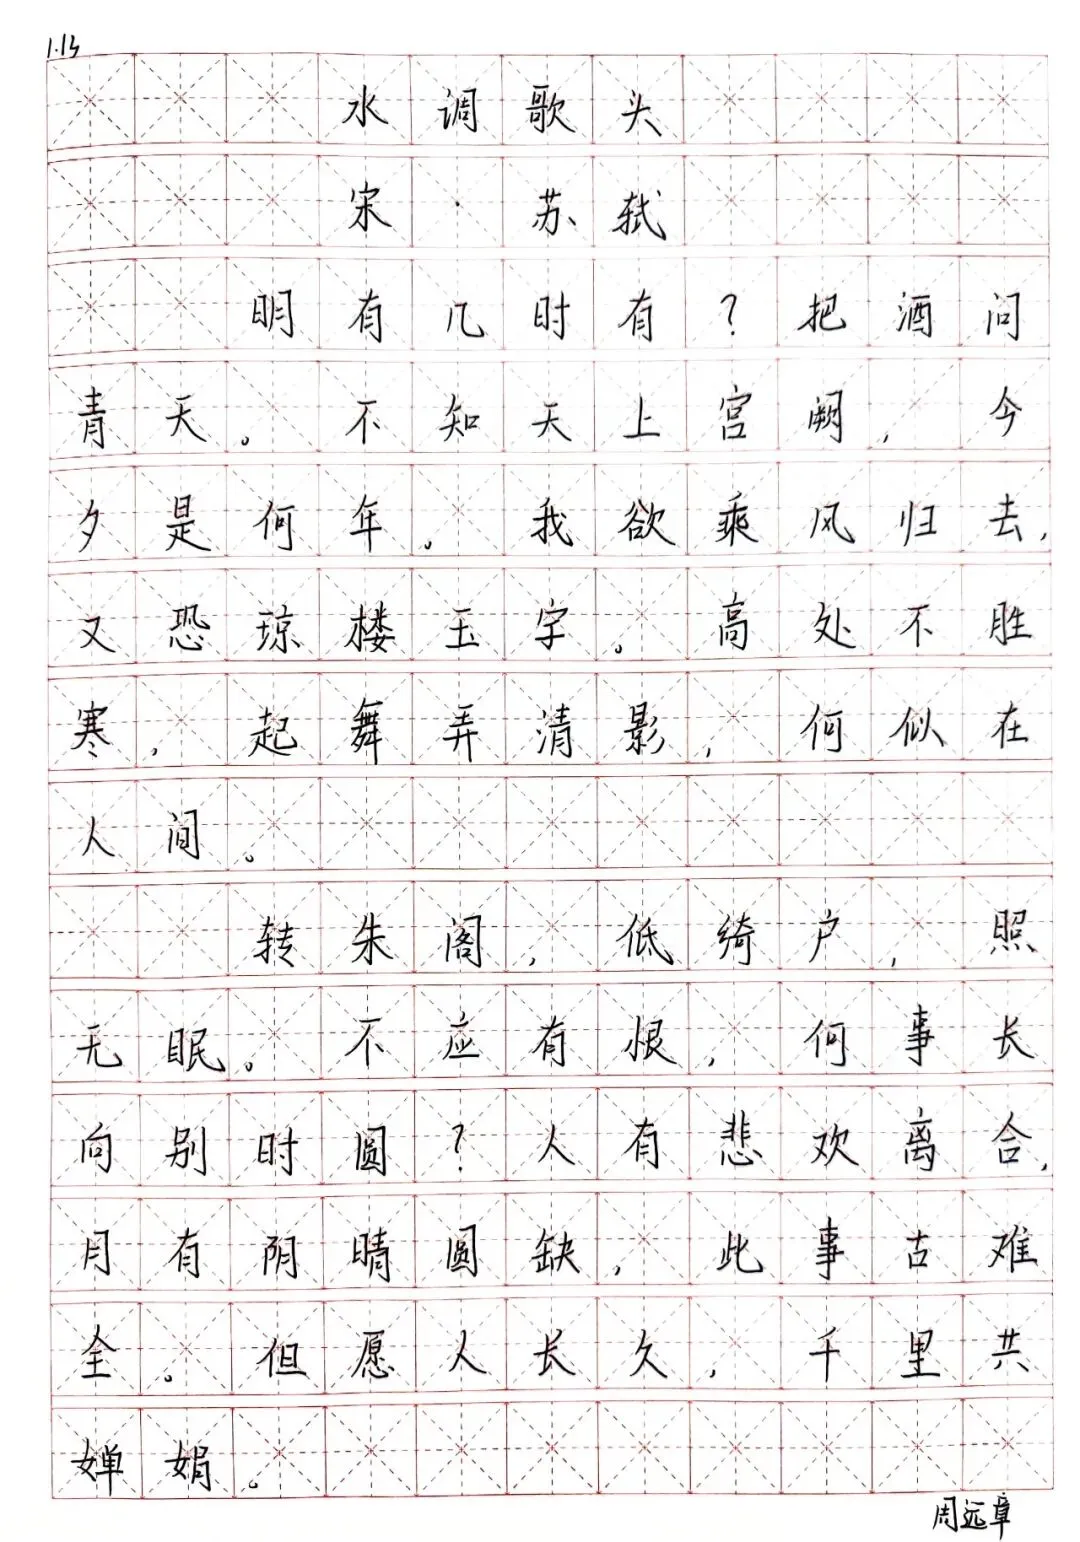 1.13
水调歌头
宋·苏轼
明有几时有？把酒问
青天。不知天上宫阙，今
夕是何年。我欲乘风归去，
又恐琼楼玉宇。高处不胜
寒，起舞弄清影，何似在
人间。
转朱阁，低绮户，照
无眠。不应有恨，何事长
向别时圆？人有悲欢离合，
月有阴晴圆缺，此事古难
全。但愿人长久，千里共
婵娟。
周远章